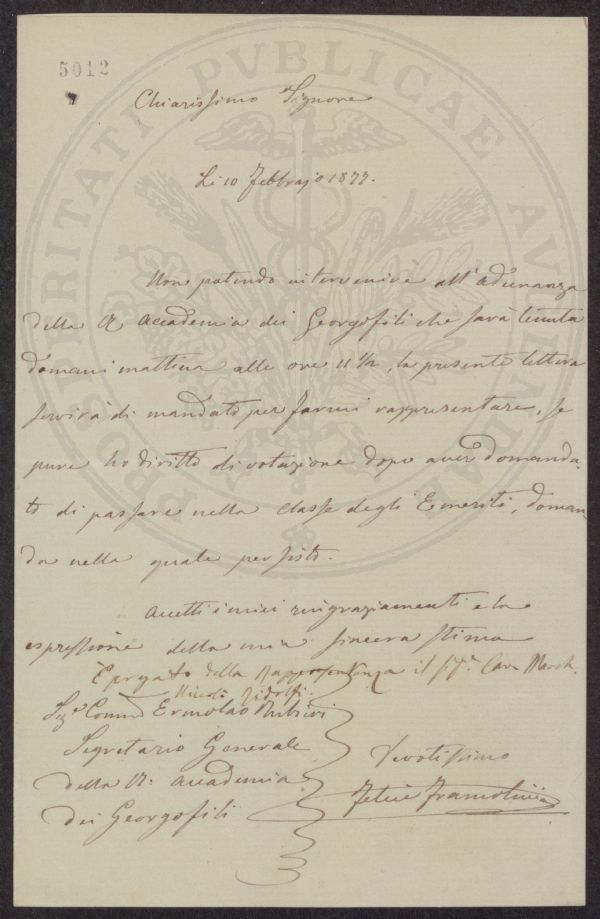 5012
PROSPERITATI PVBLICAE AVGENDAE
Chiarissimo Signore
Li 10 Febbrajo 1877.
Non potendo intervenire all'adunanza
della R Accademia dei Georgofili che sarà tenuta
domani mattina alle ore 11 1/2, la presente lettera
servirà di mandato per farmi rappresentare, se
pure ho diritto di votazione dopo aver domanda-
to di passare nella classe degli Emeriti, doman-
da nella quale persisto.
Accetti i miei ringraziamenti e la
espressione della mia sincera stima
È pregato della Rappresentanza il Sigr. Cav. March.
Nicolò Ridolfi.
Sigr Commd Ermolao Rubieri
Segretario Generale
della R. Accademia
dei Georgofili
Devotissimo
Felice